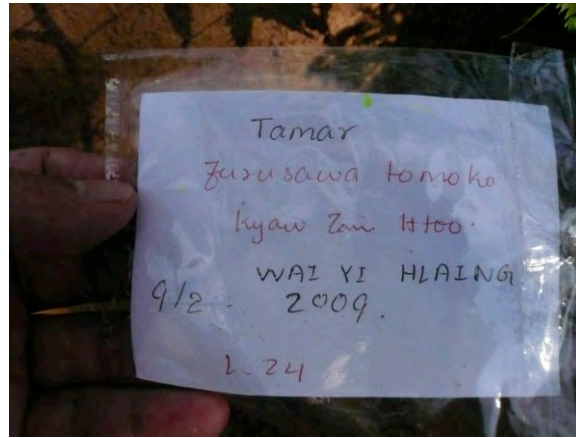 Tamar
Furusawa tomoko
kyaw Zan Htoo.
WAI YI HLAING
9/2. 2009.
L. 24